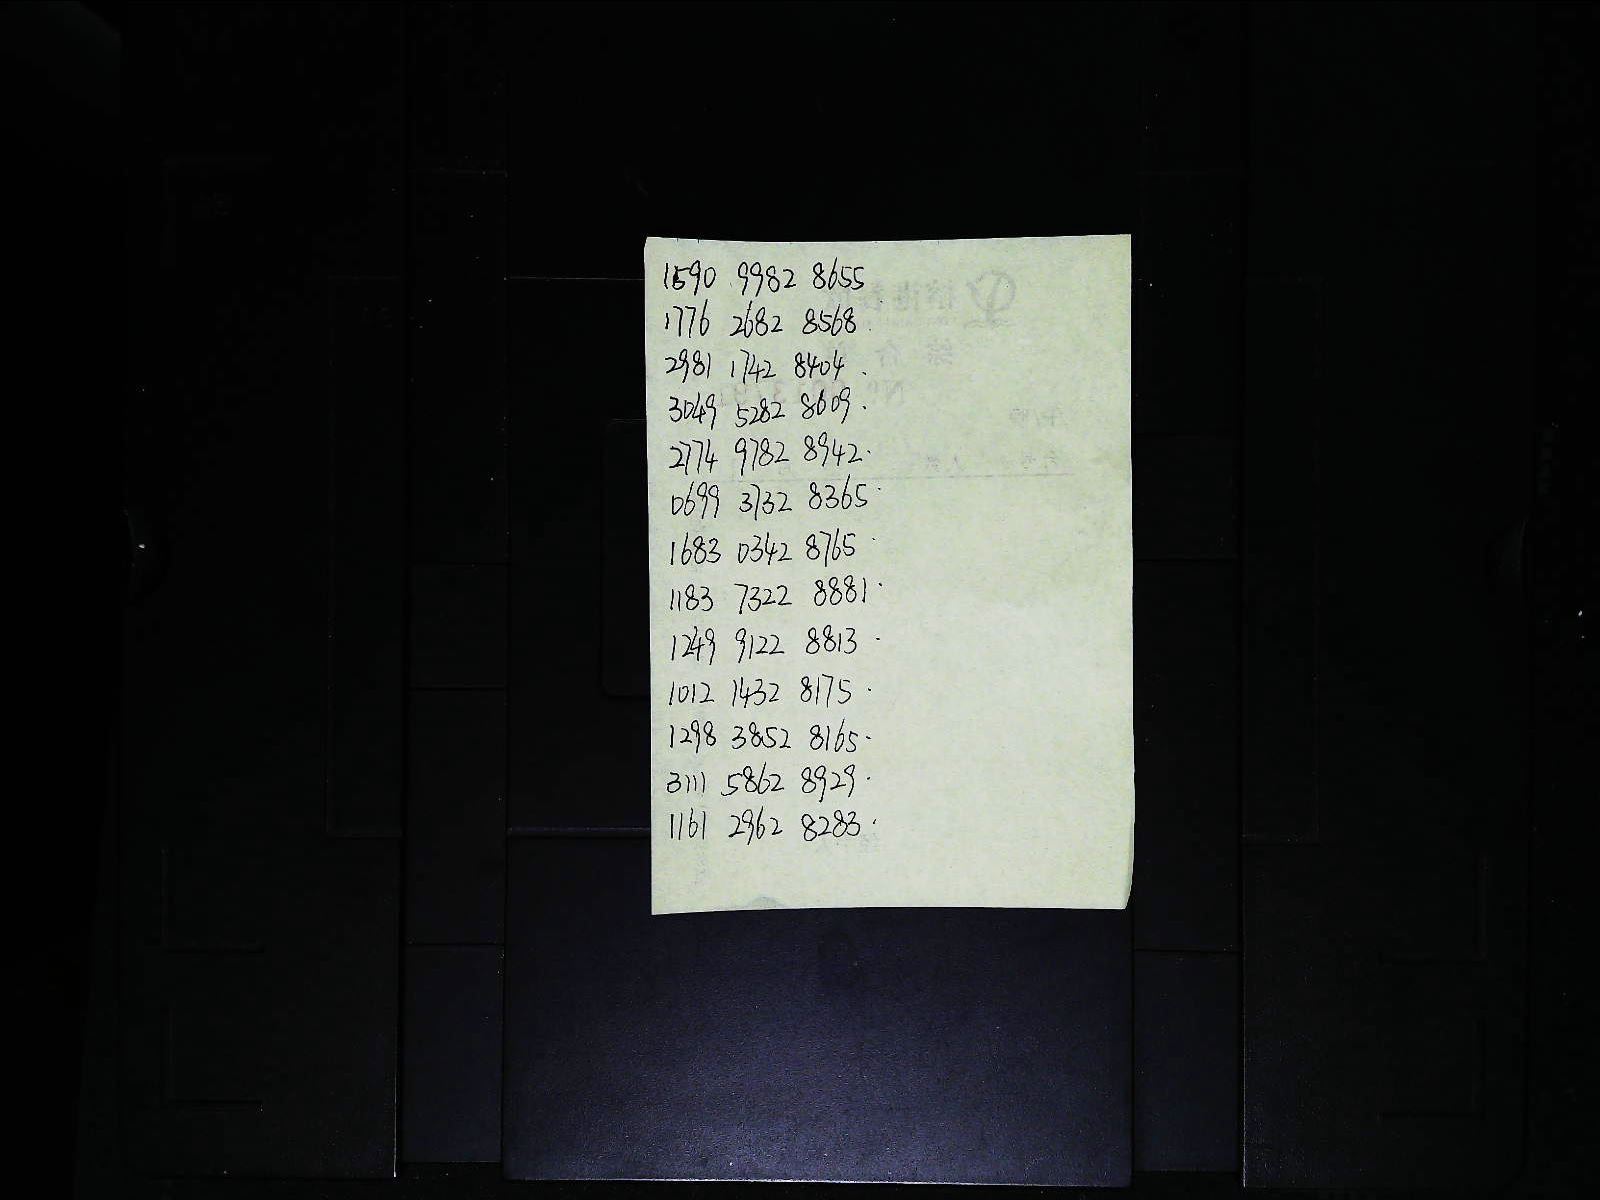 1590 9982 8655
1776 2682 8568
2981 1742 8404
3049 5282 8609
2774 9782 8942
0699 3732 8365
1683 0342 8765
1183 7322 8881
1249 9122 8813
1012 1432 8175
1298 3852 8165
3111 5862 8929
1161 2962 8283